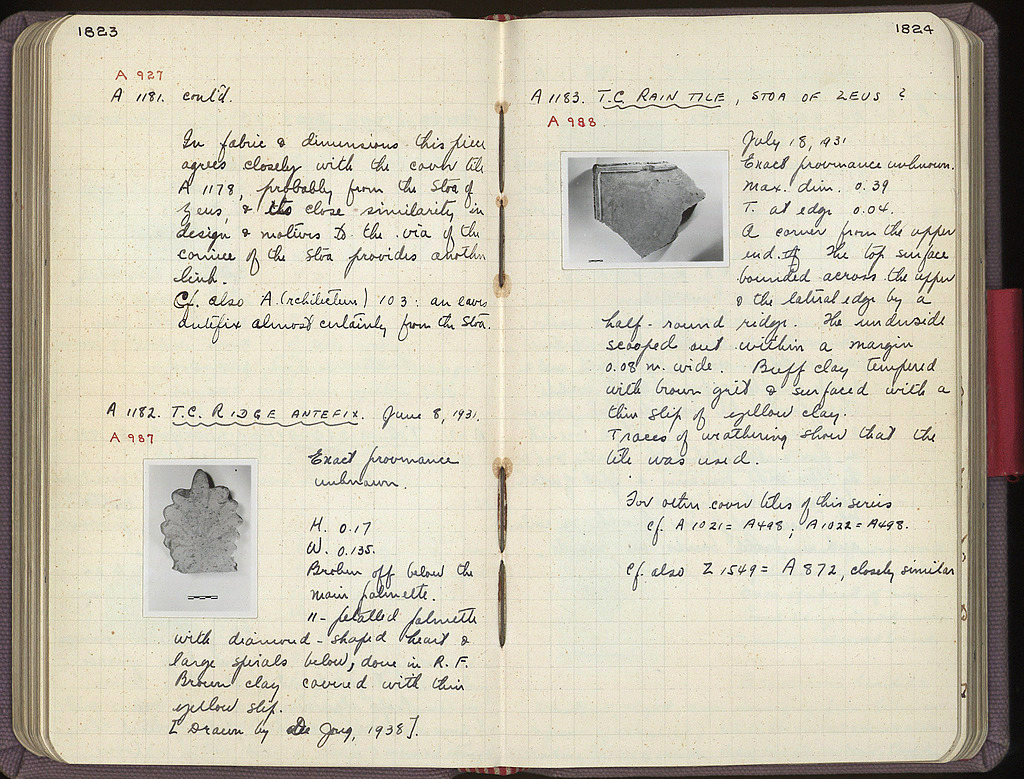 1823
A 927
A 1181. cont'd.
In fabric & dimensions this piece
agrees closely with the cover tile
A 1178, probably from the Stoa of
Zeus, & its close similarity in
design & motives to the sima of the
cornice of the Stoa provides another
link.
Cf. also A.(rchitecture) 103: an eaves
antefix almost certainly from the Stoa.
A 1182. T.C. RIDGE ANTEFIX. June 8, 1931.
A 987
Exact provenance
unknown.
H. 0.17
W. 0.135.
Broken off below the
main palmette.
11-petalled palmette
with diamond-shaped heart &
large spirals below, done in R.F.
Brown clay covered with thin
yellow slip.
[Drawn by De Jong, 1938].
1824
A 1183. T.C. RAIN TILE, STOA OF ZEUS ?
A 988
July 18, 1931
Exact provenance unknown.
Max. dim. 0.39
T. at edge 0.04.
A corner from the upper
end. The top surface
bounded across the upper
& the lateral edge by a
half-round ridge. The underside
scooped out within a margin
0.08 m. wide. Buff clay tempered
with brown grit & surfaced with a
thin slip of yellow clay.
Traces of weathering show that the
tile was used.
For other cover tiles of this series
cf. A 1021 = A 498, A 1022 = A 498.
Cf. also Z 1549 = A 872, closely similar